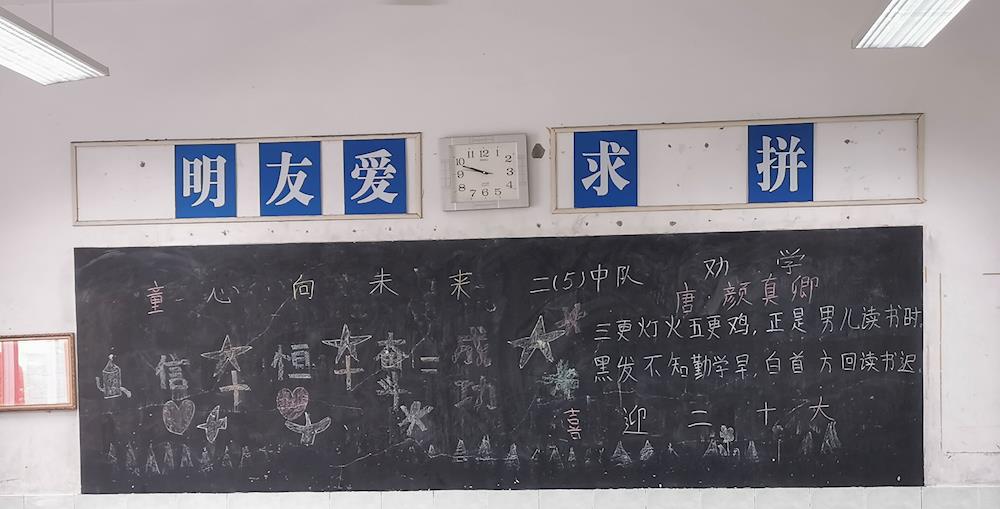 明友爱
求 拼
童心向未来
二(5)中队
劝学
唐·颜真卿
三更灯火五更鸡,正是男儿读书时,
黑发不知勤学早,白首方回读书迟.
信+恒+奋=成功
喜迎二十大
11 12 1
10 2
9 3
8 4
7 6 5